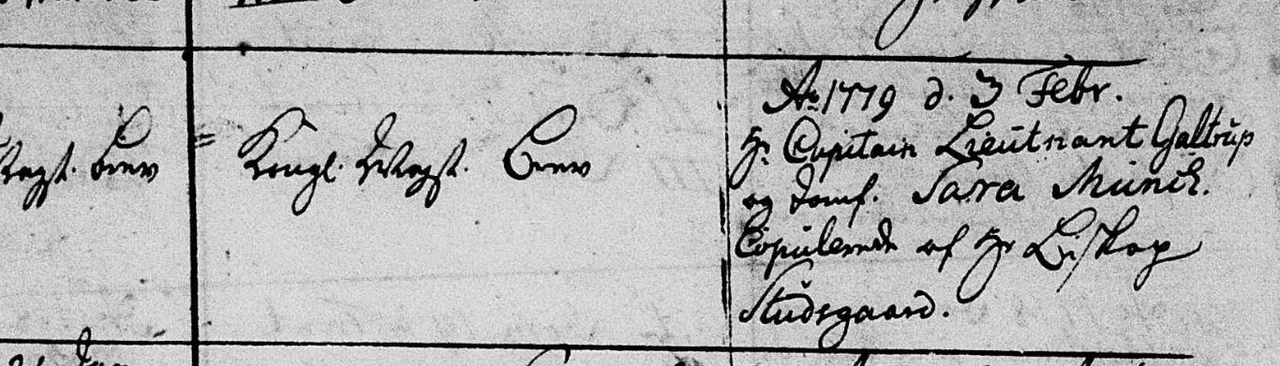 Vapst. Brev = Kongl. Vapst. Brev
Ao. 1779 d. 3 Febr.
Hr. Capitain Lieutnant Galtrup
og Jomf. Sara Munck.
Copulerede af Hr Biskop
Studsgaard.